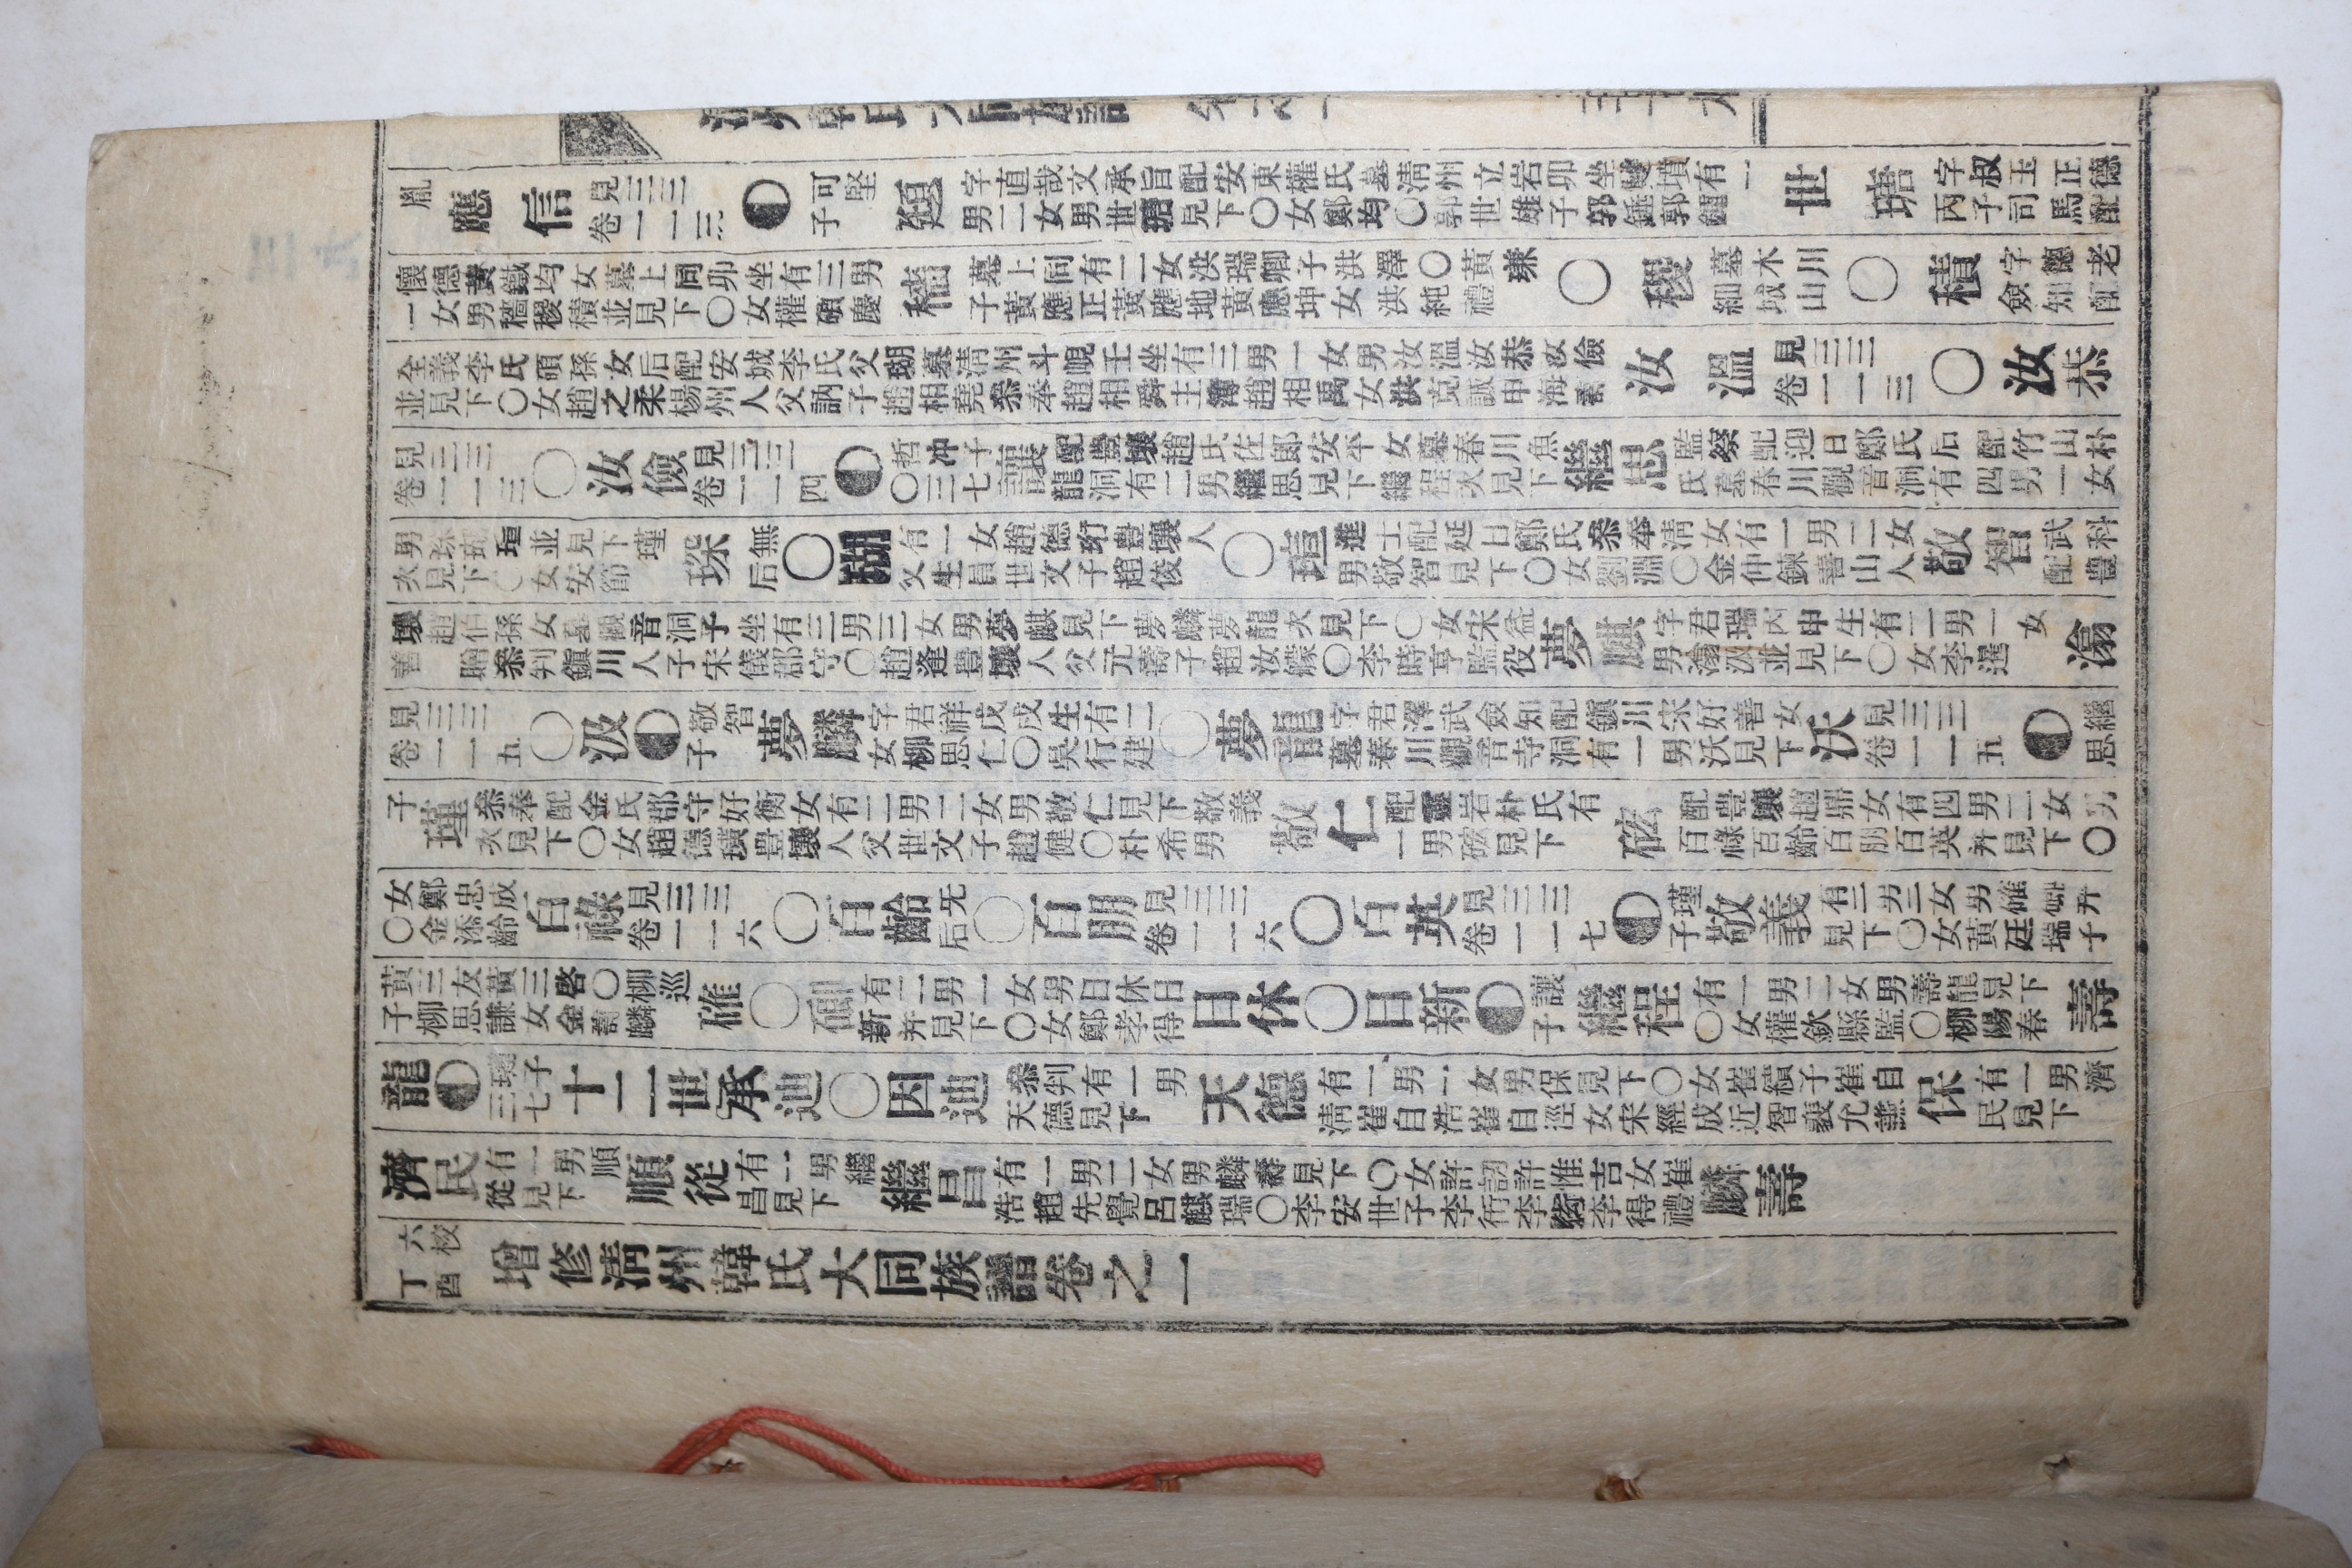 胤應信見三三卷一一三◐可堅子題字直哉文承旨配安東權氏墓淸州立岩卯坐雙墳有一男二女男世瑭見下○女鄭均○郭世雄子郭錘郭鏞世瑭字叔玉正德丙子司馬配
懷德黃鐵均女墓上同卯坐有三男一女男穡稷積並見下○女權碩慶穡墓上同有二女洪瑞卿子洪澤○黃璡子黃應正黃應地黃應坤女洪純禮○稷墓木川細城山○積字德老僉知配
全義李氏碩孫女后配安城李氏父瑚墓淸州斗峴壬坐有三男一女男汝溫汝恭汝儉並見下○女趙之柔楊州人父訥子趙相堯叅奉趙相舜主簿趙相禹女洪克諴申海壽汝溫見三三卷一一三○汝恭
見三三卷一一三○汝儉見三三卷一一四◐哲冲子○三七讓配豊壤趙氏佐郎安平女墓春川魚龍洞有二男繼思見下繼程次見下繼思監察配迎日鄭氏后配竹山朴氏墓春川觀音洞有四男一女
男琛瑚瑄並見下瑾次見下○女安節琛無后○瑚有一女趙德珩豊壤人父生員世文子趙俊○瑄進士配延日鄭氏叅奉淸女有一男二女男敬智見下○女劉淵○金仲鍊善山人敬智武科配豊
壤趙伯孫女墓觀音洞子坐有三男三女男夢麒見下夢麟夢龍次見下○女宋益善贈叅判鎭川人子宋儀郡守○趙逢豊壤人父元壽子趙汝艨○李時亨監役夢麒字君瑞丙申生有二男一女男滃汲並見下○女李暹滃
見三三卷一一五○汲◐敬智子夢麟字君祥戊戌生有二女柳思仁○吳行建○夢龍字君澤武僉知配鎭川宋好善女墓春川觀音寺洞有一男沃見下沃見三三卷一一五◐繼思
子瑾叅奉配金氏郡守好衡女有二男二女男敬仁見下敬義次見下○女趙德璜豊壤人父世文子趙健○朴希男敬仁配靈岩朴氏有一男硡見下硡配豊壤趙鼎女有四男二女男百祿百齡百朋百英幷見下○
女鄭忠成○金添齡百祿見三三卷一一六○百齡无后○百朋見三三卷一一六○百英見三三卷一一七◐瑾子敬義有二男二女男確磂幷見下○女黃廷瑞子
黃三友黃三啓○柳巡子柳思謙女金壽麟確○磂有二男一女男日休日新幷見下○女鄭孝得日休○日新◐讓子繼程有一男二女男壽龍見下○女權欽縣監○柳陽春壽
龍◐璡子三七十二世承迪○因迪叅判有一男天德見下天德有一男一女男保見下○女崔績子崔自淸崔自浩崔自逕女宋經成近智裵允謙保有一男濟民見下
濟民有一男順從見下順從有一男繼昌見下繼昌有一男二女男麟壽見下○女許訒許惟吉女崔浩趙先覺呂麒瑞○李安世子李衎李㣧李得禮麟壽
六校丁酉增修淸州韓氏大同族譜卷之一